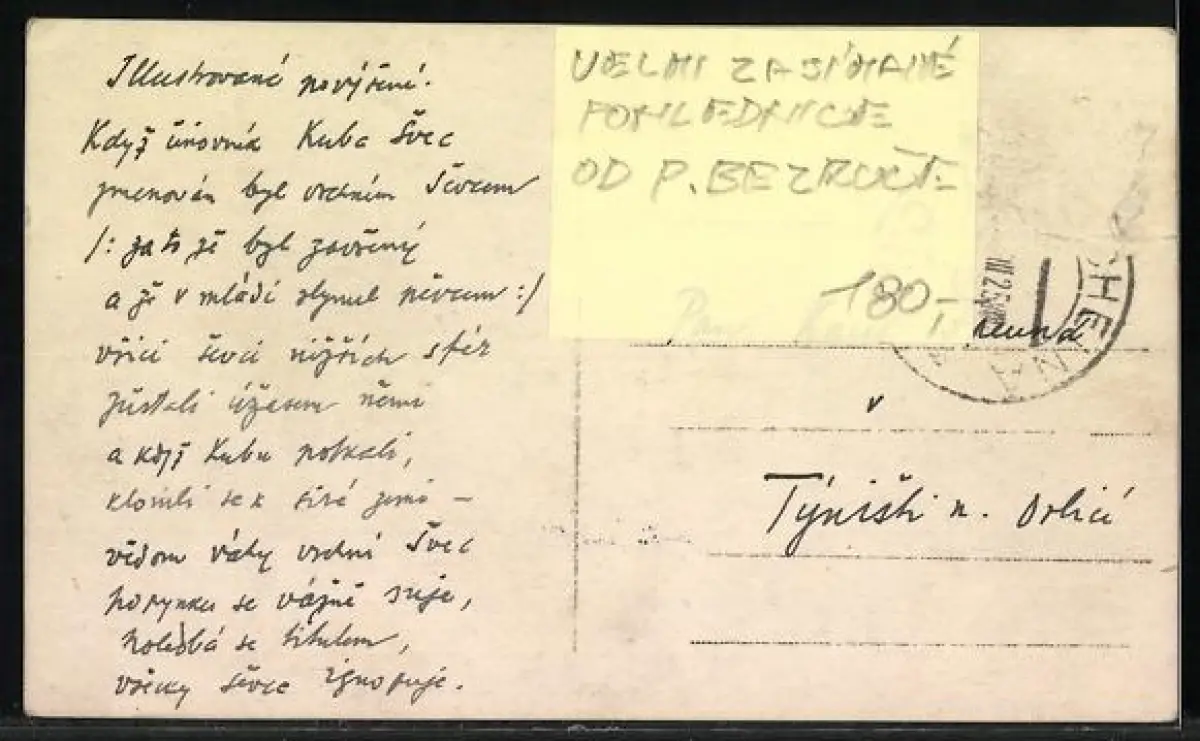 Illustrované povýšení.
Když úřovník Kuba Švec
jmenován byl vrchním Ševcem
/: za to že byl zavřený
a že v mládí slynul něvcem :/
všici ševci nižších sfér
zůstali úžasem němi
a když Kubu potkali,
klonili se k širé zemi —
vědom váhy vrchní Švec
po rynku se vážně suje,
holedbá se titulem,
všecky ševce ignoruje.
VELMI ZAJÍMAVÉ
POHLEDNICE
OD P. BEZRUČE
180,-
Pan
v
Týništi n. Orlicí